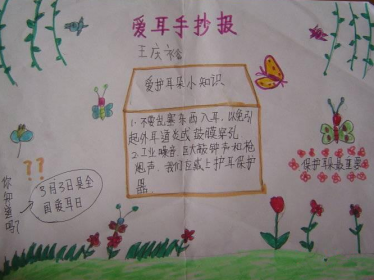 爱耳手抄报
王庆
爱护耳朵小知识
1.不要乱塞东西入耳,以免引
起外耳道炎或鼓膜穿孔
2.工业噪音,巨大敲钟声和枪
炮声,我们应戴上护耳保护
器
你知道吗?
3月3日是全
国爱耳日
保护耳朵最重要